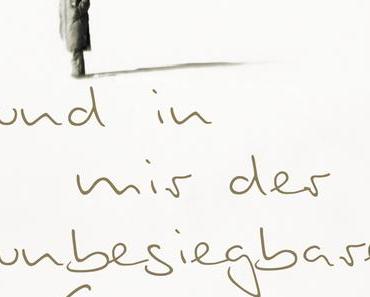 und in
mir der
unbesiegbare